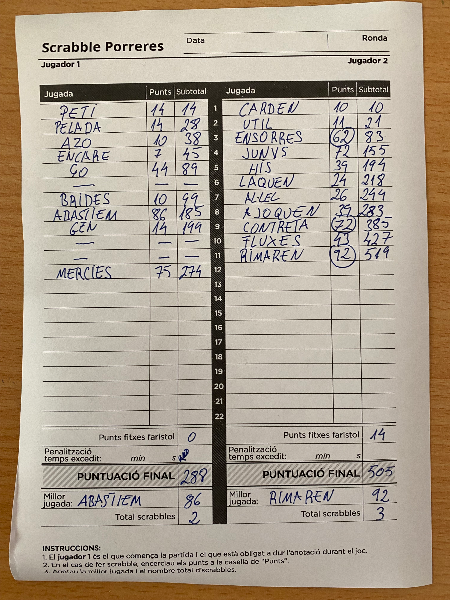 Scrabble Porreres Data Ronda
Jugador 1 Jugador 2
Jugada Punts Subtotal Jugada Punts Subtotal
PETI 14 14 1 CARDEN 10 10
PELADA 14 28 2 UTIL 11 21
AZO 10 38 3 ENSORRES 62 83
ENCARE 7 45 4 JUNYS 72 155
GO 44 89 5 HIS 39 194
— — 6 LAQUEN 24 218
BRIDES 10 99 7 ALLEL 26 244
ABASTIEM 86 185 8 AJOQUEN 39 283
GEN 14 199 9 CONTRETA 72 385
— — 10 FLUXES 43 427
— — 11 RIMAREN 92 519
MERCIES 75 274 12
13
14
15
16
17
18
19
20
21
22
Punts fitxes faristol 0 Punts fitxes faristol 14
Penalització temps excedit: min s Penalització temps excedit: min s
PUNTUACIÓ FINAL 288 PUNTUACIÓ FINAL 505
Millor jugada: ABASTIEM 86 Millor jugada: RIMAREN 92
Total scrabbles 2 Total scrabbles 3
INSTRUCCIONS:
1. El jugador 1 és el que comença la partida i el que està obligat a dur l'anotació durant el joc.
2. En el cas de fer scrabble, encerclau els punts a la casella de "Punts".
3. Anotau la millor jugada i el nombre total d'scrabbles.